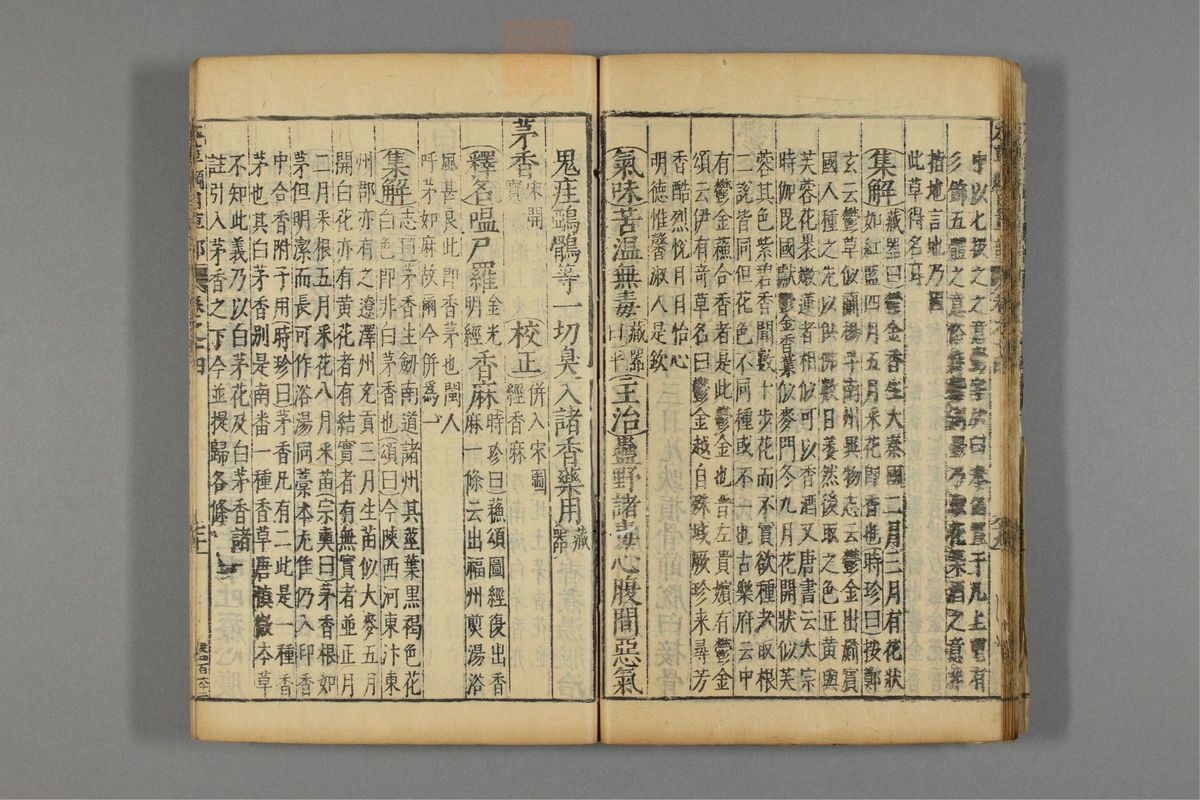 中以七
彡飾五體之意
指地言地乃
此草得名耳
集解藏器曰鬱金香生大秦國二月三月有花狀
如紅藍四月五月采花即香也時珍曰按鄭
玄云鬱草似蘭楊孚南州異物志云鬱金出罽賓
國人種之先以供佛數日萎然後取之色正黃與
芙蓉花裹嫩蓮者相似可以香酒又唐書云太宗
時伽毘國獻鬱金香葉似麥門冬九月花開狀似芙
蓉其色紫碧香聞數十步花而不實欲種者取根
二說皆同但花色不同種或不一也古樂府云中
有鬱金蘇合香者是此鬱金也昔左貴嬪有鬱金
頌云伊有奇草名曰鬱金越自殊域厥珍来尋芳
香酷烈悅目怡心
明德惟馨淑人是欽
氣味苦溫無毒藏器曰平主治蠱野諸毒心腹間惡氣
鬼疰鴉鶻等一切臭入諸香藥用藏器
茅香宋開寶校正併入宋圖經香麻
釋名嗢尸羅金光明經香麻時珍曰蘓頌圖經復出香麻一條云出福州煎湯浴
風甚良此即香茅也閩人
呼茅如麻故爾今併爲一
集解志曰茅香生劒南道諸州其莖葉黑褐色花
白色即非白茅香也頌曰今陝西河東汴東
州郡亦有之遼澤州充貢三月生苗似大麥五月
開白花亦有黄花者有結實者有無實者並正月
二月采根五月采花八月采苗宗奭曰茅香根如
茅但明潔而長可作浴湯同藁本尤佳仍入印香
中合香附子用時珍曰茅香凡有二此是一種香
茅也其白茅香别是南番一種香草唐慎微本草
不知此義乃以白茅花及白茅香諸
註引入茅香之下今並提歸各條